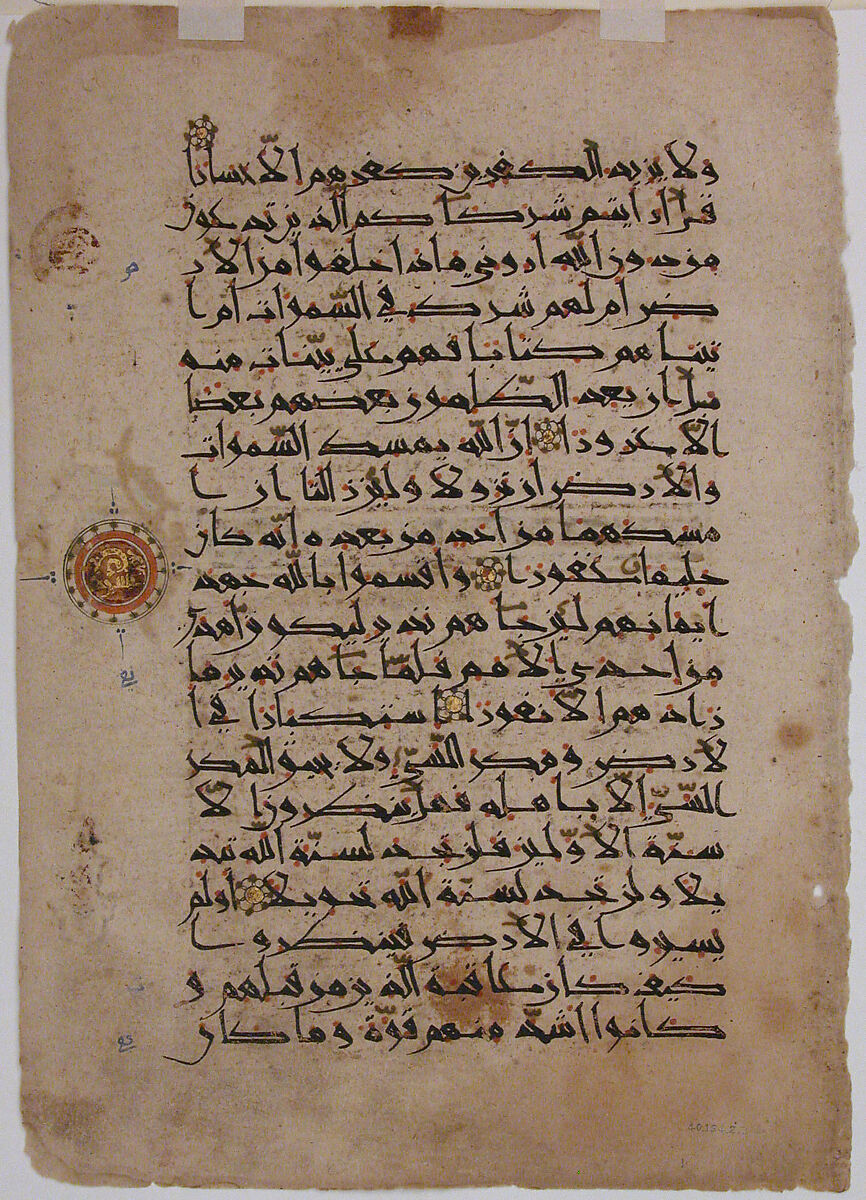 ولا يزيد الكفرين كفرهم الّا خسارا
قل ارايتم شركاكم الذين تدعون
من دون الله اروني ماذا خلقوا من الار
ض ام لهم شرك في السّموات ام ا
تيناهم كتابا فهم على بيّنات منه
بل ان يعد الظّلمون بعضهم بعضا
الّا غرورا انّ الله يمسك السّموات
والارض ان تزولا ولين زالتا ان ا
مسكهما من احد من بعده انّه كان
حليما غفورا واقسموا بالله جهد
ايمانهم لين جاهم نذير ليكونن اهدى
من احدى الامم فلمّا جاهم نذير ما
زادهم الّا نفورا استكبارا في ا
لارض ومكر السّيّئ ولا يحيق المكر
السّيّئ الّا باهله فهل ينظرون الا
سنّة الاوّلين فلن تجد لسنّة الله تبد
يلا ولن تجد لسنّة الله تحويلا اولم
يسيروا في الارض فينظروا
كيف كان عاقبة الّذين من قبلهم و
كانوا اشدّ منهم قوّة وما كان
40.154.2